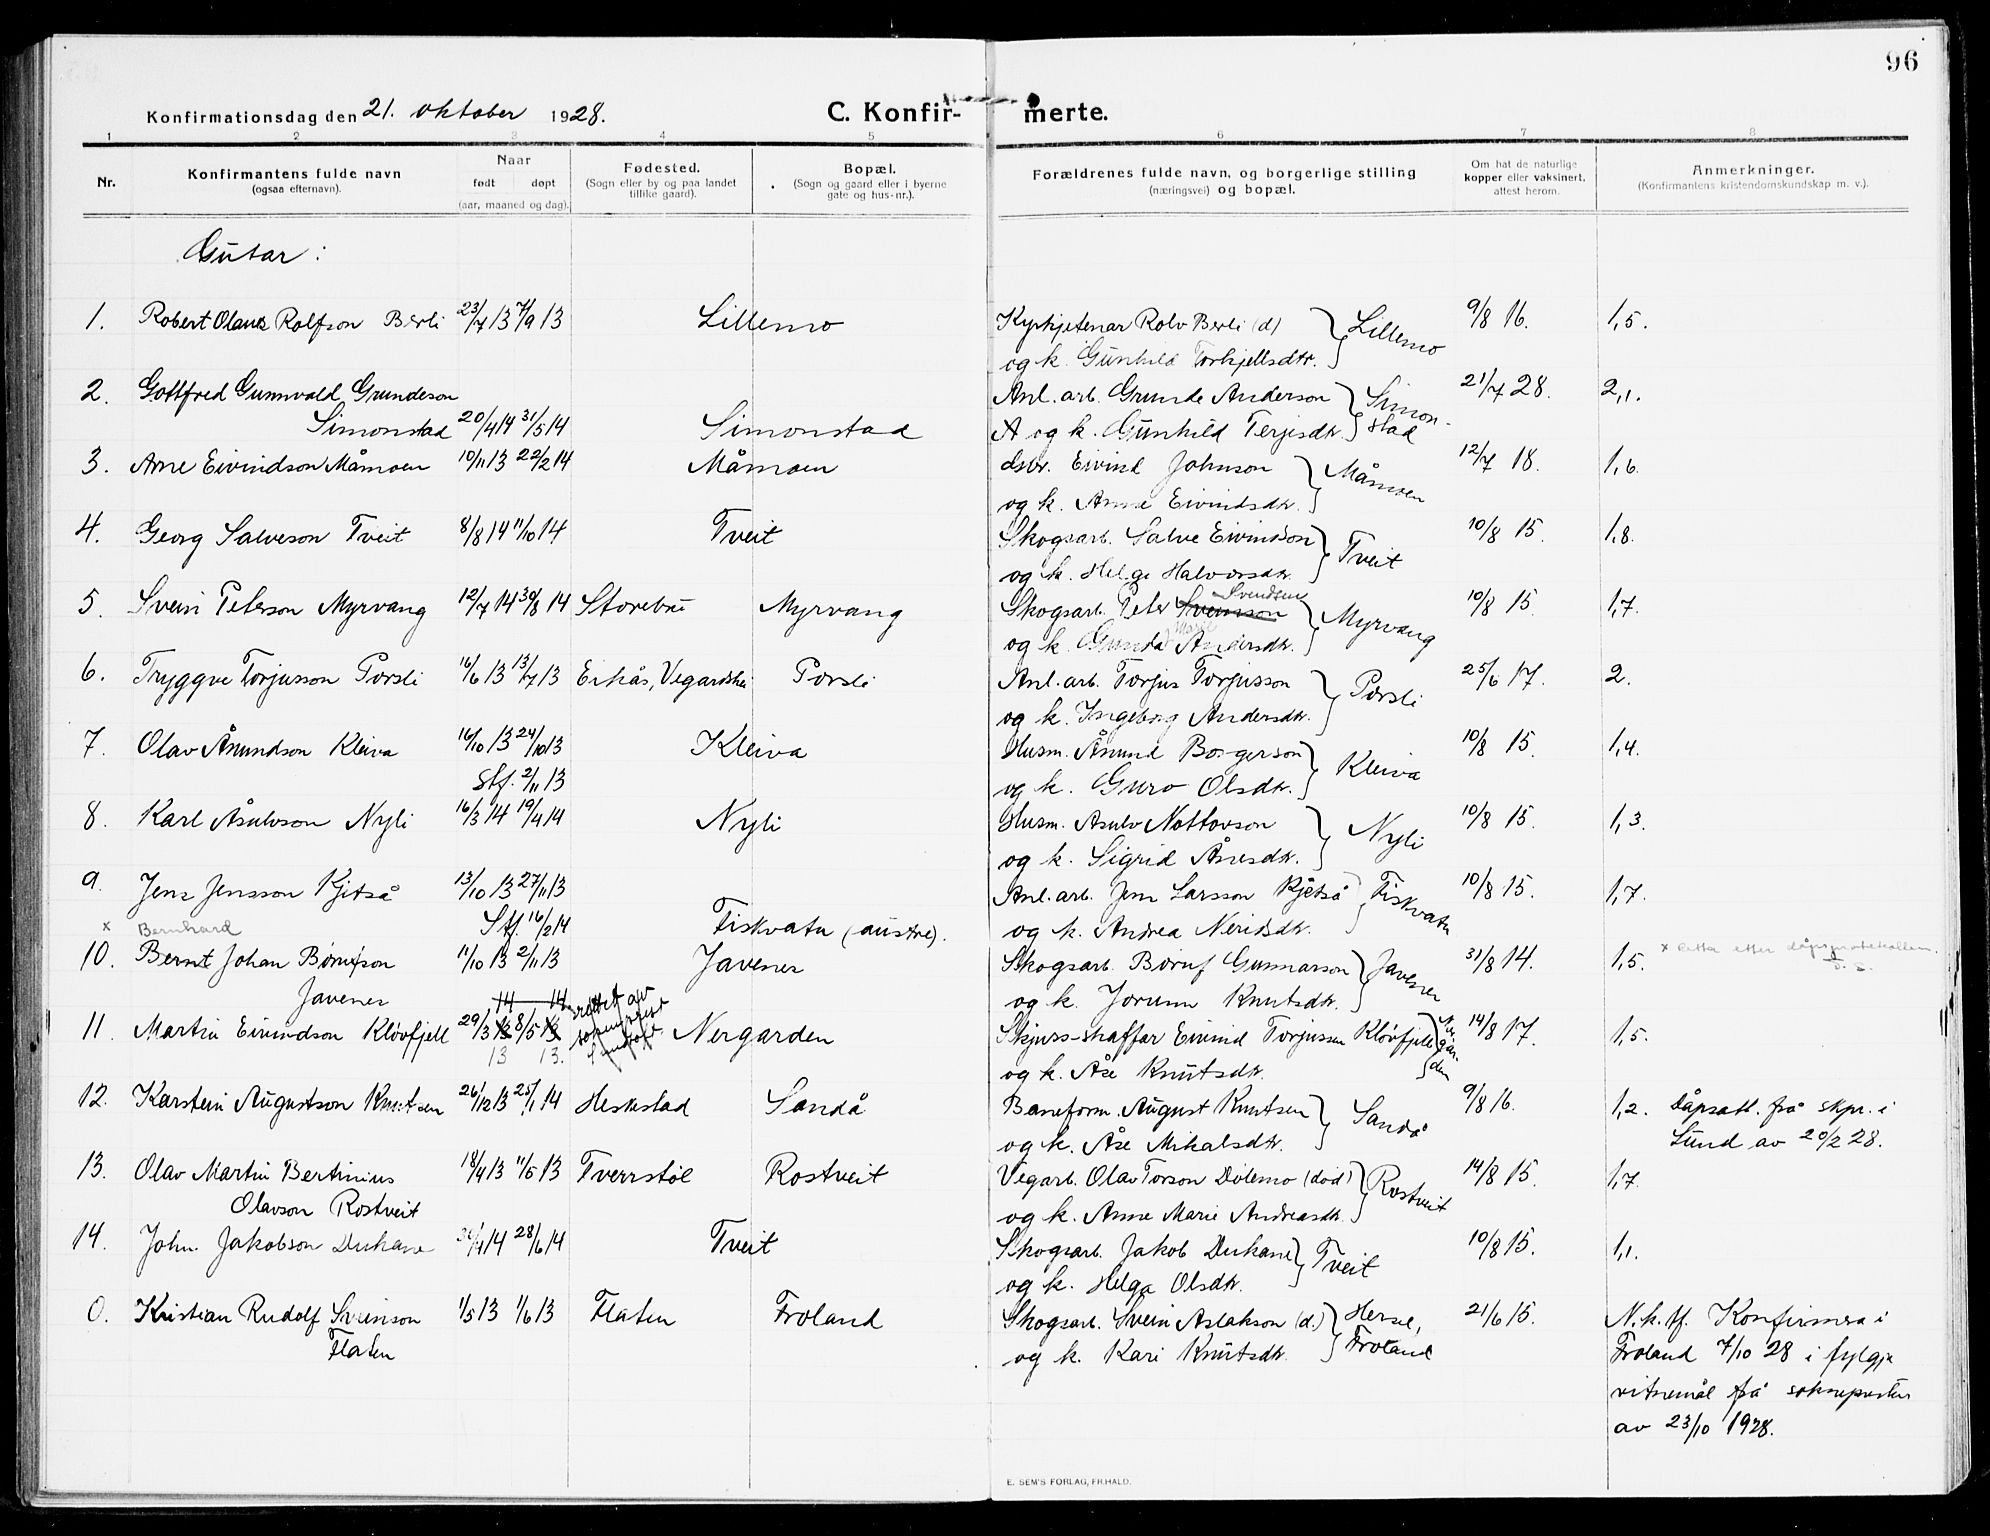 96
Konfirmationsdag den 21. oktober 1928.
C. Konfir- merte.
1 2 3 4 5 6 7 8
Nr.
Konfirmantens fulde navn
(ogsaa efternavn).
Naar
født døpt
(aar, maaned og dag).
Fødested.
(Sogn eller by og paa landet
tillike gaard).
Bopæl.
(Sogn og gaard eller i byerne
gate og hus-nr.).
Forældrenes fulde navn, og borgerlige stilling
(næringsvei) og bopæl.
Om hat de naturlige
kopper eller vaksinert,
attest herom.
Anmerkninger.
(Konfirmantens kristendomskundskap m. v.).
Gutar :
1. Robert Olaves Rolfson Berli 23/7 13 7/9 13 Lillemo Kyrkjetenar Rolv Berli (d) Lillemo 9/8 16. 1,5.
og k. Gunhild Torkjellsdtr.
2. Gottfred Gunnvald Grundeson Anl. arb. Grunde Anderson Simon- 21/7 28. 2,1.
Simonstad 20/4 14 31/5 14 Simonstad og k. Gunhild Terjesdtr. stad
3. Arne Eivindson Måmoen 10/11 13 22/2 14 Måmoen Eivind Johnson Måmoen 12/7 18. 1,6.
og k. Anne Eivindsdtr.
4. Georg Salveson Tveit 8/8 14 11/10 14 Tveit Skogsarb. Salve Eivindson Tveit 10/8 15. 1,8.
og k. Helge Halvorsdtr.
5. Svein Peterson Myrvang 12/7 14 30/8 14 Storebru Myrvang Skogsarb. Peter Sveinson Svendsen Myrvang 10/8 15. 1,7.
og k. Gunda Marie Andersdtr.
6. Tryggve Torjusson Porsli 16/6 13 13/7 13 Eikås, Vegardshei Porsli Anl. arb. Torjus Torjusson Porsli 25/6 17. 2.
og k. Ingeborg Andersdtr.
7. Olav Ånundson Kleiva 16/10 13 24/10 13 Kleiva Husm. Ånund Borgerson Kleiva 10/8 15. 1,4.
Stf. 2/11 13 og k. Guro Olsdtr.
8. Karl Åsulvson Nyli 16/3 14 19/4 14 Nyli Husm. Asulv Nottovson Nyli 10/8 15. 1,3.
og k. Sigrid Ånesdtr.
9. Jens Jensson Kjetså 13/10 13 27/11 13 Anl. arb. Jens Larsson Kjetså Fiskvatn 10/8 15. 1,7.
Stf. 16/2 14 Fiskvatn (austre). og k. Andrea Neridsdtr.
x Bernhard
10. Bernt Johan Børufson 11/10 13 2/11 13 Javenes Skogsarb. Børuf Gunnarson Javenes 31/8 14. 1,5. x Retta etter dåpsprotokollen.
Javenes og k. Jorunn Knutsdtr.
14 14 rettet av
11. Martin Eivindson Kløvfjell 29/3 13 8/5 13 sokneprest Nergarden Skjuss-skaffar Eivind Torjussen Kløvfjell Nergarden 14/8 17. 1,5.
13 13. og k. Åse Knutsdtr.
12. Karstein Augustson Knutsen 26/12 13 25/1 14 Heskestad Sandå Baneform. August Knutsen Sandå 9/8 16. 1,2. Dåpsatt. frå skpr. i
og k. Åse Mikalsdtr. Lund av 20/2 28.
13. Olav Martin Bertinius 18/4 13 11/5 13 Tverrstøl Rostveit Vegarb. Olav Torson Dølemo (død) Rostveit 14/8 15. 1,7.
Olavson Rostveit og k. Anne Marie Andreasdtr.
14. John Jakobson Duhane 14 28/6 14 Tveit Skogsarb. Jakob Duhane Tveit 10/8 15. 1,1.
og k. Helga Olsdtr.
0. Kristian Rudolf Sveinson 1/5 13 1/6 13 Flaten Froland Skogsarb. Svein Aslakson (d.) Hersel, 21/6 15. N.k.tf. Konfirmera i
Flaten og k. Kari Knutsdtr. Froland Froland 7/10 28 i fylgje
vitnemål frå soknepresten
av 23/10 1928.
E. SEM'S FORLAG, FR.HALD.